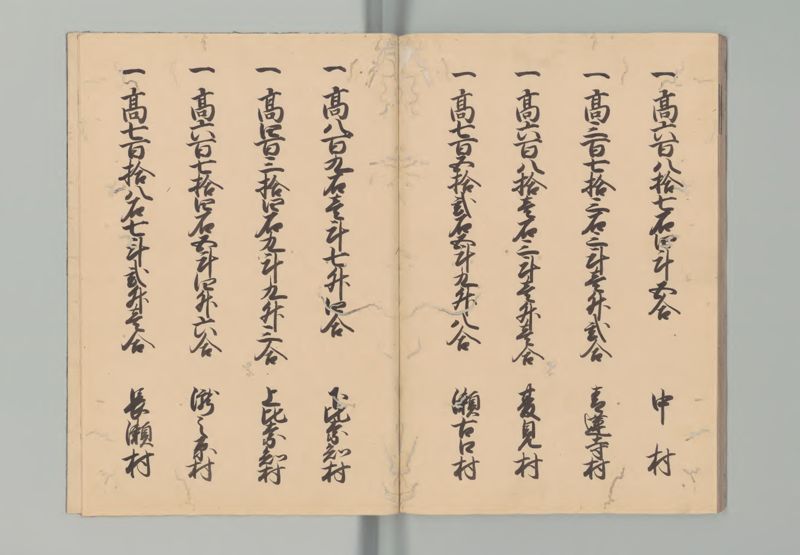 一高六百八拾七石四斗五合 中村
一高三百七拾三石三斗壱升弐合 青蓮寺村
一高六百八拾壱石三斗壱升壱合 夏見村
一高七百五拾弐石五斗九升八合 瀬古口村
一高八百九石壱斗七升四合 下比奈知村
一高四百三拾四石九斗九升三合 上比奈知村
一高六百七拾四石五斗四升六合 滝之原村
一高七百拾八石七斗弐升壱合 長瀬村